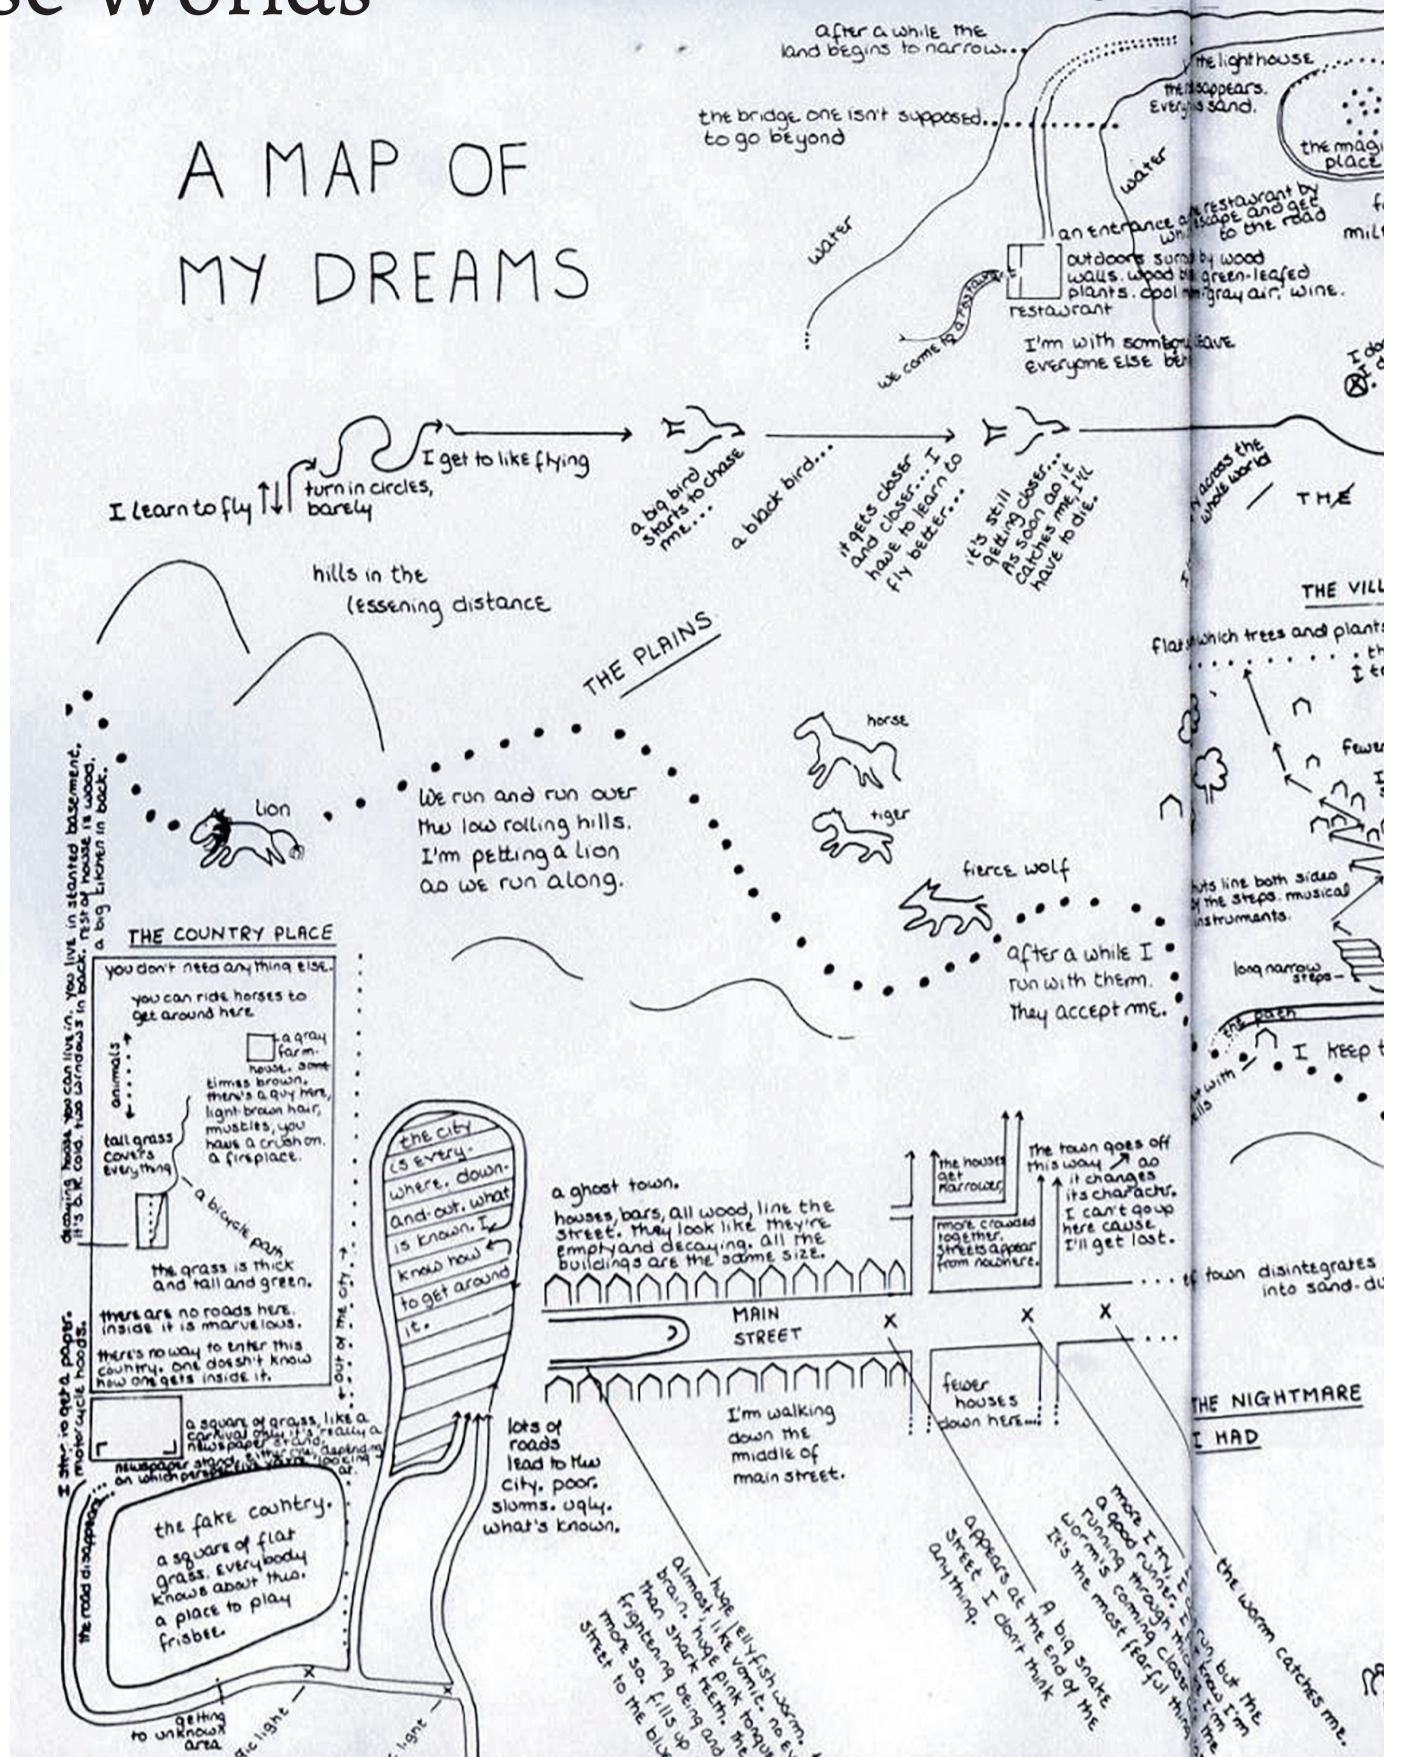 se Worlds
A MAP OF
MY DREAMS
after a while the
land begins to narrow...
the bridge one isn't supposed
to go beyond
water
water
the lighthouse
disappears.
sand.
the magi
place
an entrance
restaurant by
escape and get
to the road
mil
outdoors by wood
walls. wood green-leafed
plants. cool gray air, wine.
restaurant
we come to a restaurant
I'm with leave
everyone else
I learn to fly
turn in circles,
barely
I get to like flying
a big bird
starts to chase
me...
a black bird...
it gets closer
and closer... I
have to learn to
fly better...
it's still
getting closer...
As soon as it
catches me, I'll
have to die.
across the
whole world
THE
hills in the
lessening distance
THE PLAINS
THE VILL
which trees and plants
horse
tiger
lion
We run and run over
the low rolling hills.
I'm petting a lion
as we run along.
fierce wolf
after a while I
run with them.
They accept me.
fewer
huts line both sides
of the steps. musical
instruments.
long narrow
steps
the path
I keep t
decaying house you can live in. you live in slanted basement.
it's dark cold. two windows in back. rest of house is wood.
a big kitchen in back.
THE COUNTRY PLACE
you don't need anything else.
you can ride horses to
get around here
animals
a gray
farm-
house. some
times brown.
there's a guy here,
light-brown hair,
muscles, you
have a crush on.
a fireplace.
tall grass
covers
everything
a bicycle path
the grass is thick
and tall and green.
there are no roads here.
inside it is marvelous.
there's no way to enter this
country. one doesn't know
how one gets inside it.
out of the city
I stop to get a paper.
motorcycle hoods.
a square of grass, like a
carnival only it's really a
newspaper stand,
newspaper stand, either one, depending
on which perspective you're looking
at.
the road disappears...
the fake country.
a square of flat
grass. everybody
knows about this.
a place to play
frisbee.
getting
to unknown
area
light
light
the city
is every-
where. down-
and-out. what
is known. I
know how
to get around
it.
lots of
roads
lead to the
city. poor.
slums. ugly.
what's known.
a ghost town.
houses, bars, all wood, line the
street. They look like they're
empty and decaying. all the
buildings are the same size.
MAIN
STREET
I'm walking
down the
middle of
main street.
the houses
get
narrower
more crowded
together.
streets appear
from nowhere.
The town goes off
this way as
it changes
its character.
I can't go up
here cause
I'll get lost.
fewer
houses
down here...
town disintegrates
into sand-du
THE NIGHTMARE
I HAD
huge jellyfish worm.
almost like vomit. no
brain. huge pink tongue
than shark teeth. The
frightening being and
more so. fills up
street to the
A big snake
appears at the end of the
street. I don't think
anything.
more I try,
a good runner. I
running through
worm's coming closer
It's the most fearful thing
run, but the
know I'm
the worm catches me.